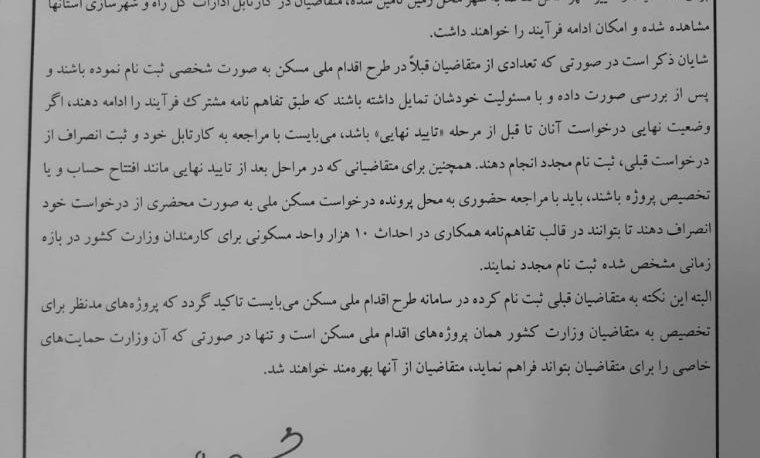 شهر محل زمین تامین شده، متقاضیان در کارتابل ادارات کل راه و شهرسازی استانها
مشاهده شده و امکان ادامه فرآیند را خواهند داشت.
شایان ذکر است در صورتی که تعدادی از متقاضیان قبلاً در طرح اقدام ملی مسکن به صورت شخصی ثبت نام نموده باشند و
پس از بررسی صورت داده و با مسئولیت خودشان تمایل داشته باشند که طبق تفاهم نامه مشترک فرآیند را ادامه دهند، اگر
وضعیت نهایی درخواست آنان تا قبل از مرحله «تایید نهایی» باشد، می‌بایست با مراجعه به کارتابل خود و ثبت انصراف از
درخواست قبلی، ثبت نام مجدد انجام دهند. همچنین برای متقاضیانی که در مراحل بعد از تایید نهایی مانند افتتاح حساب و یا
تخصیص پروژه باشند، باید با مراجعه حضوری به محل پرونده درخواست مسکن ملی به صورت محضری از درخواست خود
انصراف دهند تا بتوانند در قالب تفاهم‌نامه همکاری در احداث ۱۰ هزار واحد مسکونی برای کارمندان وزارت کشور در بازه
زمانی مشخص شده ثبت نام مجدد نمایند.
البته این نکته به متقاضیان قبلی ثبت نام کرده در سامانه طرح اقدام ملی مسکن می‌بایست تاکید گردد که پروژه‌های مدنظر برای
تخصیص به متقاضیان وزارت کشور همان پروژه‌های اقدام ملی مسکن است و تنها در صورتی که آن وزارت حمایت‌های
خاصی را برای متقاضیان بتواند فراهم نماید، متقاضیان از آنها بهره‌مند خواهند شد.